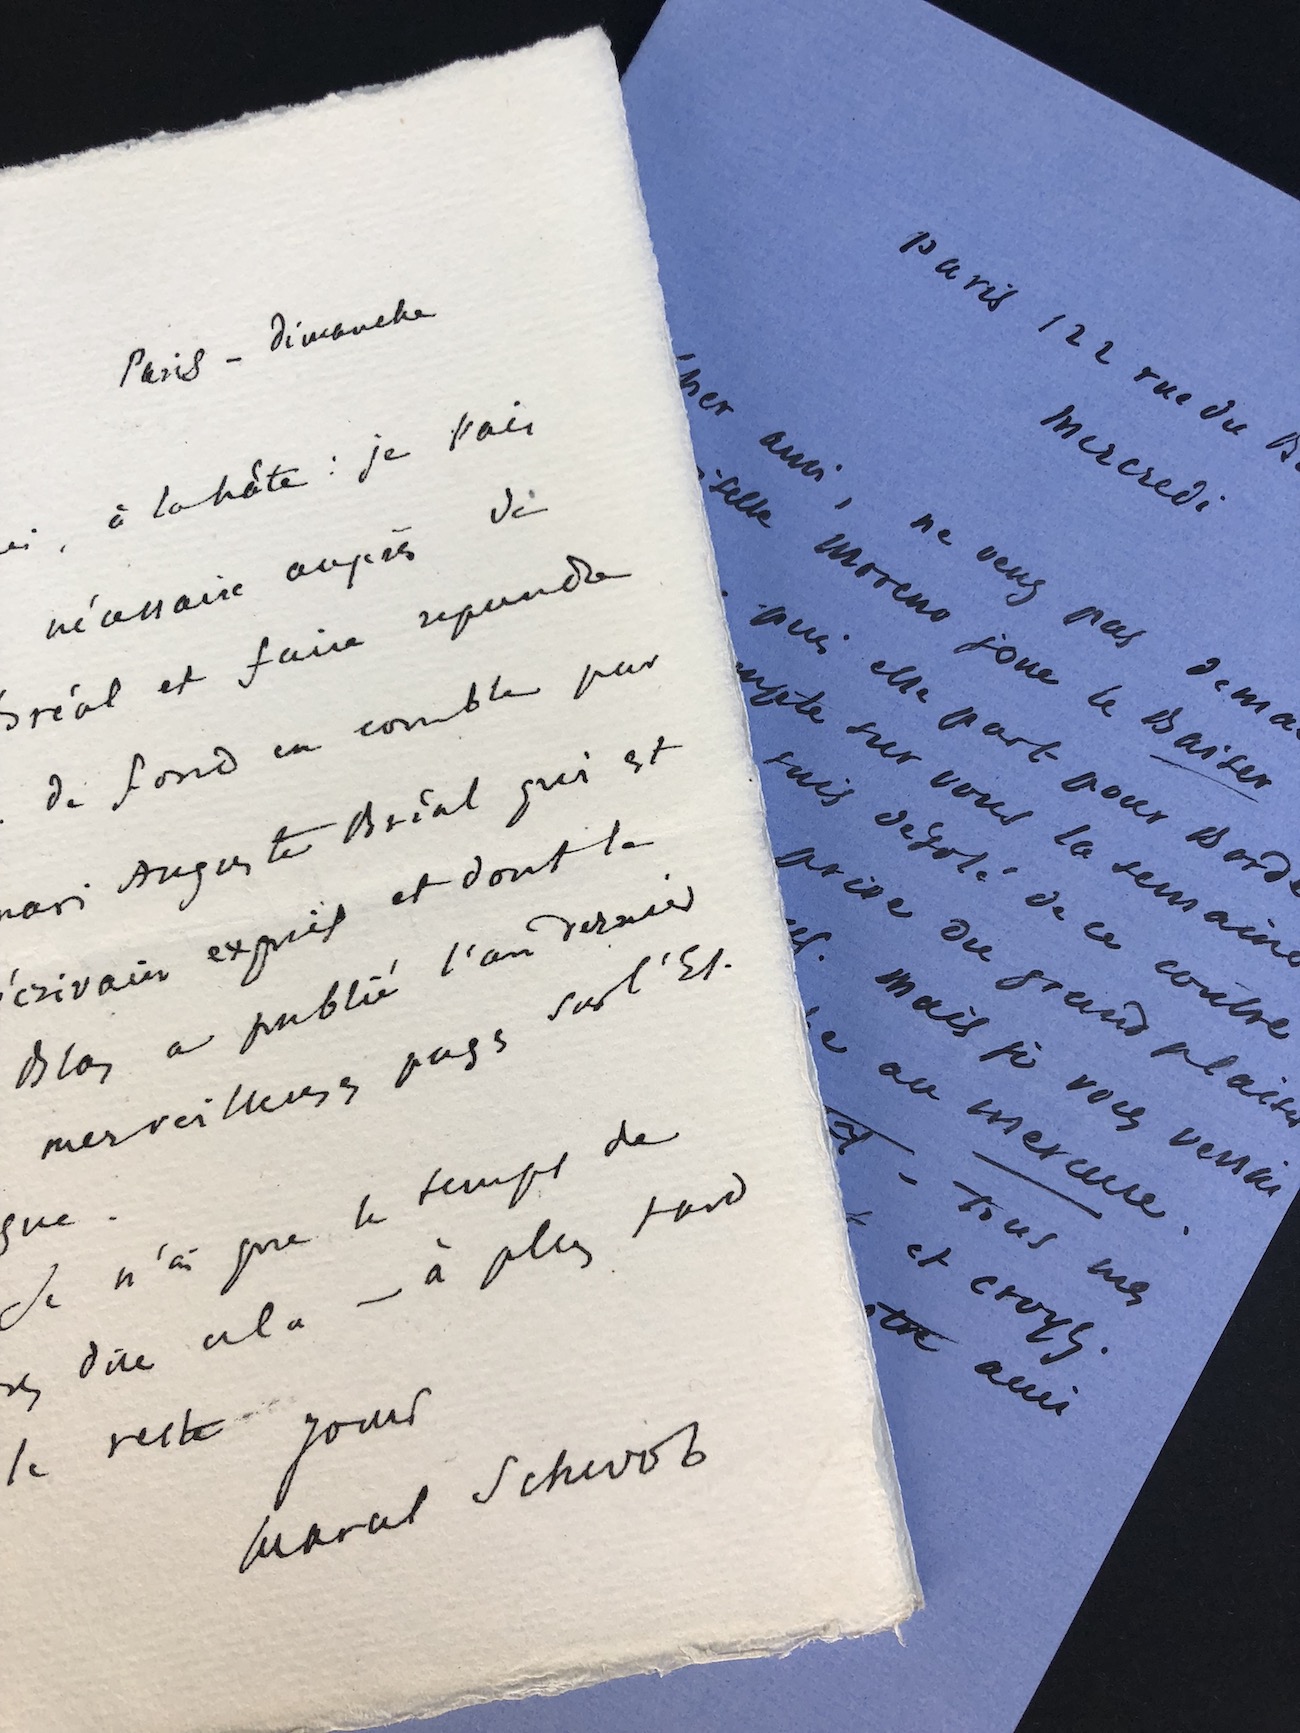 Paris – dimanche
à la hâte : je fais
nécessaire auprès de
Bréal et faire reprendre
de fond en comble par
mari Auguste Bréal qui est
écrivain exquis et dont le
Blas a publié l'an dernier
merveilleuses pages sur l'Es-
gne.
Je n'ai que le temps de
dire cela – à plus tard
le reste
Marcel Schwob
Paris 122 rue du B
Mercredi
cher ami, ne venez pas dema
iselle Moreno joue le Baiser
puis elle part pour Borde
compte sur vous la semaine
suis désolé de ce contre
prive du grand plaisir
Mais si vous veniez
au Mercure.
– Tous mes
et croyez.
otre ami